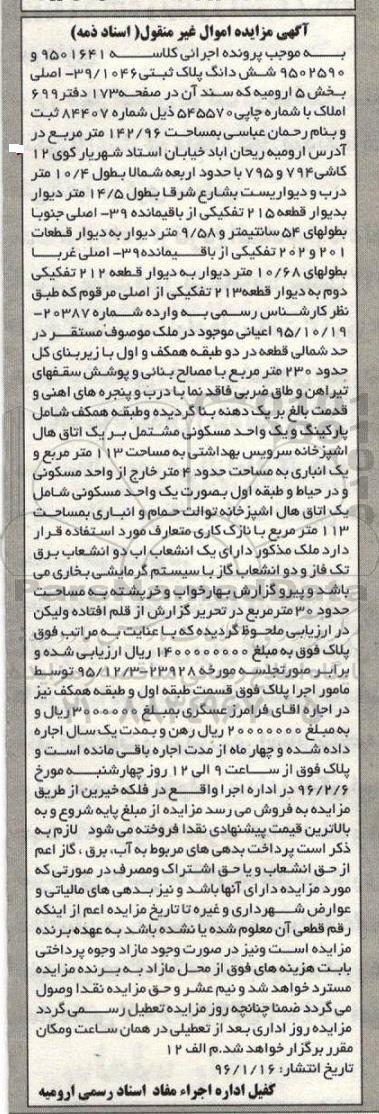 آگهی مزایده اموال غیر منقول( اسناد ذمه)
بـــه موجب پرونده اجرائی کلاســـه ۹۵۰۱۶۴۱ و
۹۵۰۲۵۹۰ شش دانگ پلاک ثبتی۳۹/۱۰۴۶- اصلی
بخش ۵ ارومیه که سند آن در صفحه۱۷۳ دفتر۶۹۹
املاک با شماره چاپی۵۴۵۵۷۰ ذیل شماره ۸۴۴۰۷ ثبت
و بنام رحمان عباسی بمساحت ۱۴۲/۹۶ متر مربع در
آدرس ارومیه ریحان اباد خیابان استاد شهریار کوی ۱۲
کاشی۷۹۴ و ۷۹۵ با حدود اربعه شمالا بطول ۱۰/۴ متر
درب و دیواریست بشارع شرقا بطول ۱۴/۵ متر دیوار
بدیوار قطعه ۲۱۵ تفکیکی از باقیمانده ۳۹- اصلی جنوبا
بطولهای ۵۴ سانتیمتر و ۹/۵۸ متر دیوار به دیوار قطعات
۲۰۱ و ۲۰۲ تفکیکی از باقـــیمانده۳۹- اصلی غربـــا
بطولهای ۱۰/۶۸ متر دیوار به دیوار قطعه ۲۱۲ تفکیکی
دوم به دیوار قطعه۲۱۳ تفکیکی از اصلی مرقوم که طبق
نظر کارشناس رسمی به وارده شماره ۲۰۳۸۷-
۹۵/۱۰/۱۹ اعیانی موجود در ملک موصوف مستقر در
حد شمالی قطعه در دو طبقه همکف و اول با زیربنای کل
حدود ۲۳۰ متر مربع با مصالح بنائی و پوشش سقفهای
تیراهن و طاق ضربی فاقد نما با درب و پنجره های اهنی و
قدمت بالغ بر یک دهنه بنا گردیده وطبقه همکف شامل
پارکینگ و یک واحد مسکونی مشتمل بر یک اتاق هال
اشپزخانه سرویس بهداشتی به مساحت ۱۱۳ متر مربع و
یک انباری به مساحت حدود ۴ متر خارج از واحد مسکونی
و در حیاط و طبقه اول بصورت یک واحد مسکونی شامل
یک اتاق هال اشپزخانه توالت حمام و انباری بمساحت
۱۱۳ متر مربع با نازک کاری متعارف مورد استفاده قرار
دارد ملک مذکور دارای یک انشعاب اب دو انشعاب برق
تک فاز و دو انشعاب گاز با سیستم گرمایشی بخاری می
باشد و پیرو گزارش بهارخواب و خرپشته به مساحت
حدود ۳۰ مترمربع در تحریر گزارش از قلم افتاده ولیکن
در ارزیابی ملحوظ گردیده که با عنایت به مراتب فوق
پلاک فوق به مبلغ ۱۴۰۰۰۰۰۰۰۰ ریال ارزیابی شده و
برابر صورتجلسه مورخه ۲۳۹۲۸-۹۵/۱۲/۳ توسط
مامور اجرا پلاک فوق قسمت طبقه اول و طبقه همکف نیز
در اجاره اقای فرامرز عسکری بمبلغ ۳۰۰۰۰۰۰ریال و
به مبلغ ۲۰۰۰۰۰۰۰ ریال رهن و بمدت یک سال اجاره
داده شده و چهار ماه از مدت اجاره باقی مانده است و
پلاک فوق از ساعت ۹ الی ۱۲ روز چهارشنبه مورخ
۹۶/۲/۶ در اداره اجرا واقع در فلکه خیرین از طریق
مزایده به فروش می رسد مزایده از مبلغ پایه شروع و به
بالاترین قیمت پیشنهادی نقدا فروخته می شود لازم به
ذکر است پرداخت بدهی های مربوط به آب، برق ، گاز اعم
از حق انشعاب و یا حق اشتراک ومصرف در صورتی که
مورد مزایده دارای آنها باشد و نیز بدهی های مالیاتی و
عوارض شهرداری و غیره تا تاریخ مزایده اعم از اینکه
رقم قطعی آن معلوم شده یا نشده باشد به عهده برنده
مزایده است ونیز در صورت وجود مازاد وجوه پرداختی
بابت هزینه های فوق از محل مازاد به برنده مزایده
مسترد خواهد شد و نیم عشر و حق مزایده نقدا وصول
می گردد ضمنا چنانچه روز مزایده تعطیل رسمی گردد
مزایده روز اداری بعد از تعطیلی در همان ساعت ومکان
مقرر برگزار خواهد شد.م الف ۱۲
تاریخ انتشار: ۹۶/۱/۱۶
کفیل اداره اجراء مفاد اسناد رسمی ارومیه